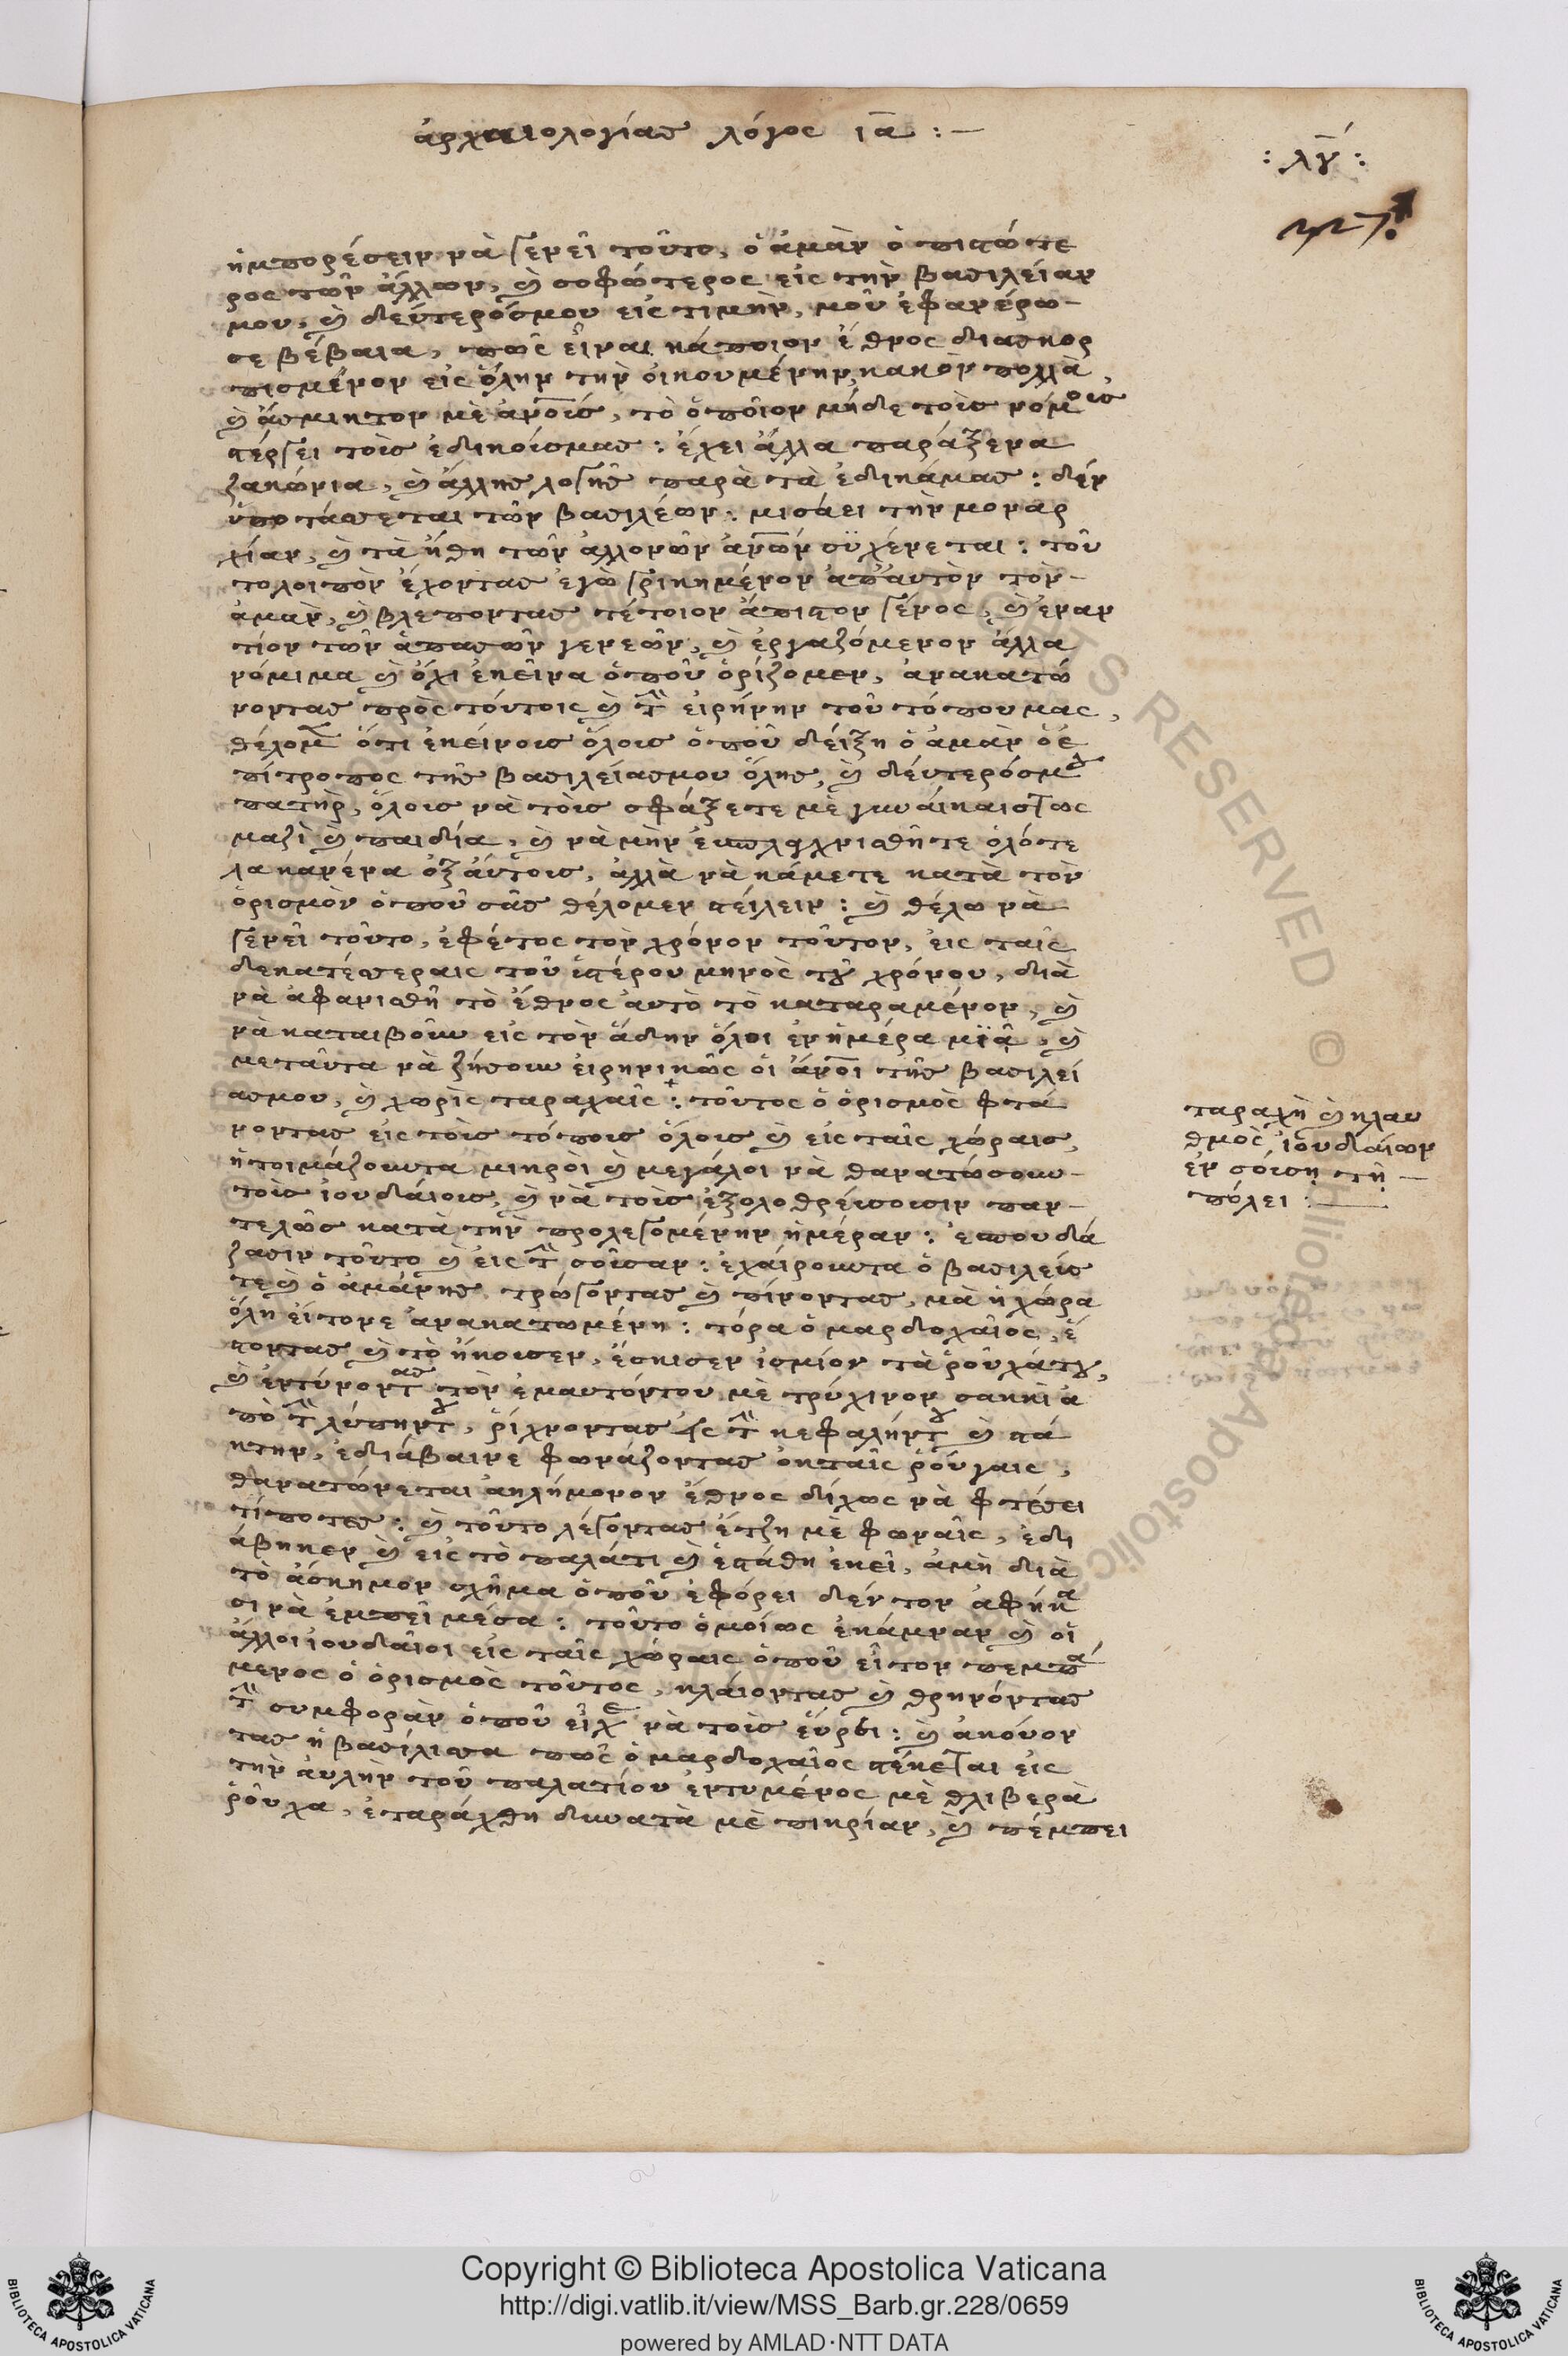 ἀρχαιολογίας λόγος ια :—
: λγ :
ἡμπορέσειν νὰ γενεῖ τοῦτο, ὁ ἀμὰν ὁ πιστώτε
ρος τῶν ἄλλων, καὶ σοφώτερος εἰς τὴν βασιλείαν
μου, καὶ δεύτερόσμου εἰς τιμὴν, μοῦ ἐφανέρω-
σε βέβαια, πῶς εἶναι κάποιον ἔθνος διασκορ
πισμένον εἰς ὅλην τὴν οἰκουμένην, κακὸν πολλὰ,
καὶ ἄσμικτον μὲ ανοὺς, τὸ ὁποῖον μήδε τοὺς νόμους
στέργει τοὺς ἐδικούσμας : ἔχει ἄλλα παράξενα
ζακώνια, καὶ ἄλλης λογῆς παρὰ τὰ ἐδικάμας : δὲν
ὑποτάσσεται τῶν βασιλέων : μισάει τὴν μοναρ
χίαν, καὶ τὰ ἤθη τῶν ἀλλονῶν ανων συχένεται : τοῦ
τολοιπὸν ἔχοντας ἐγὼ γρικημένον ἀπ' αὐτὸν τὸν-
ἀμὰν, καὶ βλέποντας τέτοιον ἄπιστον γένος, καὶ ἐναν
τίον τῶν ἁπασῶν γενεῶν, καὶ ἐργαζόμενον ἄλλα
νόμιμα καὶ ὄχι ἐκεῖνα ὁποῦ ὁρίζομεν, ἀνακατώ
νοντας πρὸς τούτοις καὶ τὴν εἰρήνην τοῦ τόπου μας,
θέλομεν ὅτι ἐκείνους ὅλους ὁποῦ δείξη ὁ ἀμὰν ὁ ἐ
πίτροπος τῆς βασιλείασμου ὅλης, καὶ δεύτερόσμου
πατὴρ, ὅλους νὰ τοὺς σφάξετε μὲ γυναίκαιςτως
μαζὶ καὶ παιδία, καὶ νὰ μὴν ἐυσπλαχνισθῆτε ὁλότε
λα κανένα ὀξ αὐτους, ἀλλὰ νὰ κάμετε κατὰ τὸν
ὁρισμὸν ὁποῦ σᾶς θέλομεν στείλειν : καὶ θέλω νὰ
γενεῖ τοῦτο, ἐφέτος τὸν χρόνον τοῦτον, εἰς ταῖς
δεκατέσσεραις τοῦ ὑστέρου μηνὸς τοῦ χρόνου, διὰ
νὰ ἀφανισθῆ τὸ ἔθνος αὐτὸ τὸ καταραμένον, καὶ
νὰ καταιβοῦν εἰς τὸν ἅδην ὅλοι ἐν ἡμέρα μιᾶ, καὶ
μεταῦτα νὰ ζήσουν εἰρηνικῶς οἱ ανοι τῆς βασιλεί
ασμου, καὶ χωρὶς ταραχαῖς : τοῦτος ὁ ὁρισμὸς φτά
νοντας εἰς τοὺς τόπους ὅλους καὶ εἰς ταῖς χώραις,
ἡτοιμάζουντα μικροὶ καὶ μεγάλοι νὰ θανατώσουν-
τοὺς ἰουδαίους, καὶ νὰ τοὺς ἐξολοθρεύσουσιν παν-
τελῶς κατὰ τὴν προλεγομένην ἡμέραν : ἐσπουδά
ζασιν τοῦτο καὶ εἰς τὴν σοῦσαν : ἐχαίρουντα ὁ βασιλεύς
τε καὶ ὁ ἀμάνης τρώγοντας καὶ πίνοντας, μὰ ἡ χώρα
ὅλη εἴτονε ἀνακατωμένη : τόρα ὁ μαρδοχαῖος, ἔ
στοντας καὶ τὸ ἤκουσεν, ἔσκισεν ὀσμίον τὰ ῥοῦχάτου,
καὶ ἐντύνοντας τὸν ἐμαυτόντου μὲ τρύχινον σακκὶ ἀ
πὸ τὴν λύπηντου, ῥίχνοντας εἰς τὴν κεφαλήντου καὶ στά
κτην, ἐδιάβαινε φωνάζοντας ὀκταῖς ῥούγαις,
θανατώνεται ἀκλήμονον ἔθνος δίχως νὰ φτέσει
τίποτες : καὶ τοῦτο λέγοντας ἔτζη μὲ φωναῖς, ἐδι
άβηκεν καὶ εἰς τὸ παλάτι καὶ ἐστάθη ἐκεῖ, ἀμὴ διὰ
τὸ ἄσκημον σχῆμα ὁποῦ ἐφόρει δέν τον ἀφήκα
σι νὰ ἐμπεῖ μέσα : τοῦτο ὁμοίως ἐκάμναν καὶ οἱ
ἄλλοι ἰουδαῖοι εἰς ταῖς χώραις ὁποῦ εἶτον πεμπά
μενος ὁ ὁρισμὸς τοῦτος, κλαίοντας καὶ θρηνόντας
τὴν συμφορὰν ὁποῦ εἶχε νὰ τοὺς εὕρει : καὶ ἀκούον
τας ἡ βασίλισσα πῶς ὁ μαρδοχαῖος στέκεται εἰς
τὴν αὐλὴν τοῦ παλατίου ἐντυμένος μὲ θλιβερὰ
ῥοῦχα, ἐταράχθη δυνατὰ μὲ πικρίαν, καὶ πέμπει
ταραχὴ καὶ κλαυ
θμὸς ἰουδαίων
ἐν σούση τῆ-
πόλει :—
Copyright © Biblioteca Apostolica Vaticana
http://digi.vatlib.it/view/MSS_Barb.gr.228/0659
powered by AMLAD·NTT DATA